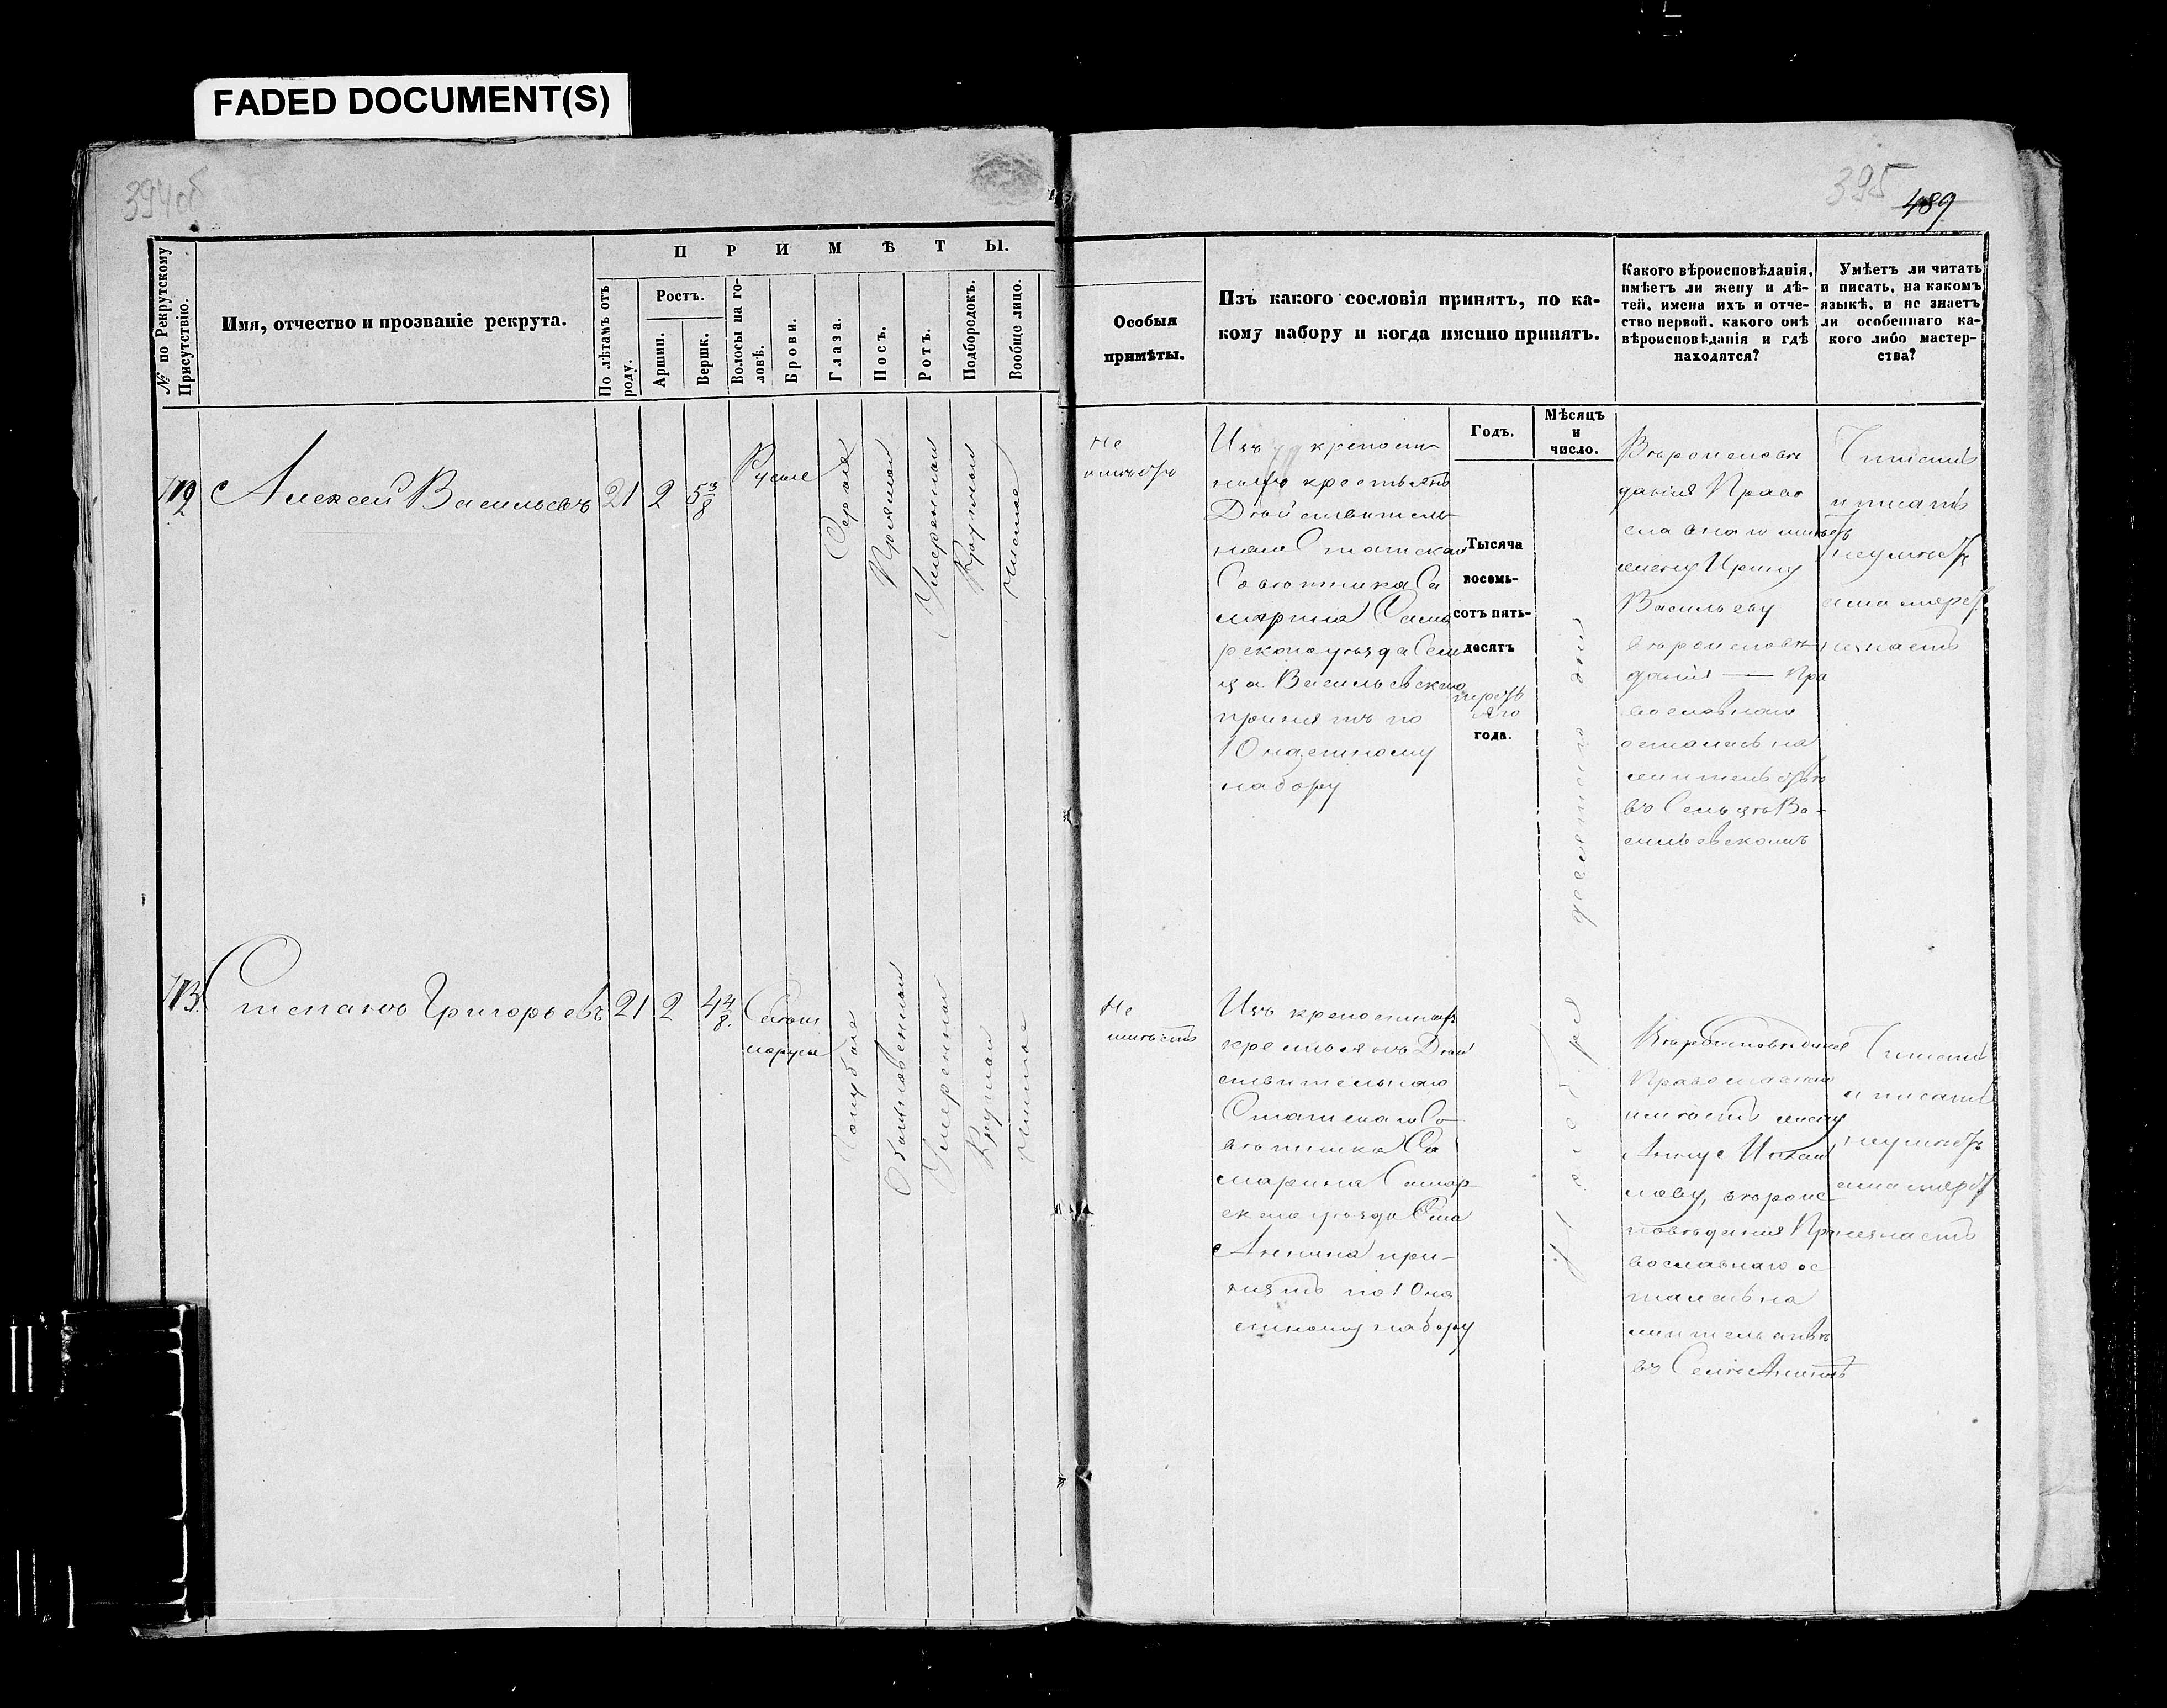 FADED DOCUMENT(S)
394об
395
489
№ по Рекрутскому Присутствію.
Имя, отчество и прозваніе рекрута.
ПРИМѢТЫ.
По лѣтамъ отъ роду.
Ростъ.
Аршин.
Вершк.
Волосы на головѣ.
Брови.
Глаза.
Носъ.
Ротъ.
Подбородокъ.
Вообще лицо.
Особыя
примѣты.
Изъ какого сословія принятъ, по ка-
кому набору и когда именно принятъ.
Годъ.
Мѣсяцъ
и
число.
Какого вѣроисповѣданія,
имѣетъ ли жену и дѣ-
тей, имена ихъ и отче-
ство первой, какого онѣ
вѣроисповѣданія и гдѣ
находятся?
Умѣетъ ли читать
и писать, на какомъ
языкѣ, и не знаетъ
ли особеннаго ка-
кого либо мастер-
ства?
112
Алексей Васильевъ
21
2
5 3/8
Русые
Серые
Прямой
Умеренный
Круглый
чистое
Не
имѣетъ
Изъ крепост
ныхъ крестьянъ
Действитель
наго Статскаго
Советника Са
марина Сама
рскаго уѣзда Сель
ца Васильевскаго
принятъ по
10 частному
набору
Тысяча
восемь-
сотъ пять-
десятъ
года.
Вѣроисповѣ
данія Право
славнаго имѣетъ
жену Ирину
Васильеву
вѣроисповѣ
данія — Пра
вославнаго
осталась на
жительствѣ
въ Сельцѣ Ва-
сильевскомъ
Читать
и писать
неумѣетъ
а мастерст
незнаетъ
113.
Степанъ Григорьевъ
21
2
4 4/8.
Светло
порусы
Голубые
Обыкновенный
Умеренный
Круглой
чистое
Не
имѣетъ
Изъ крепостныхъ
крестьянъ Дей
ствительнаго
Статскаго Со
вѣтника Са
марина Самар
скаго уѣзда Села
Аннина при-
нятъ по 10 ча
стному набору
Вѣроисповѣданія
Православнаго
имѣетъ жену
Анну
вѣроис
повѣданія Пра
вославнаго ос
талась на
жительствѣ
въ Селѣ Аннинѣ
Читать
и писать
неумѣетъ
а мастерст
незнаетъ